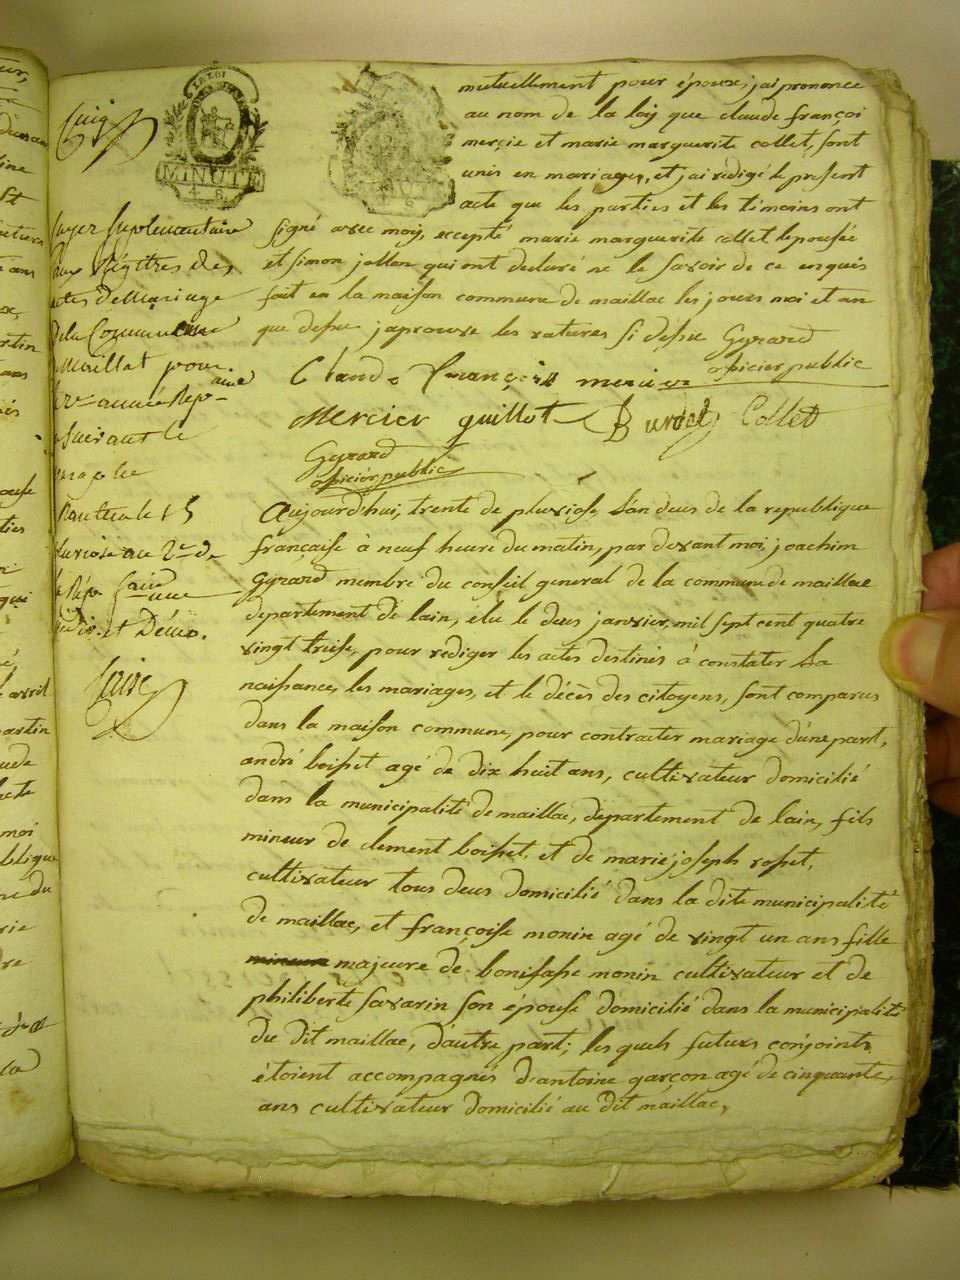 Cinq
LA LOI
MINUTE
4 S.
mutuellement pour époux, j'ai prononcé
au nom de la loy que claude françoi
mercie et marie marguerite collet, sont
unis en mariages, et j'ai rédigé le present
acte que les parties et les témoins ont
signé avec moy, excepté marie marguerite collet lepousée
et simon jollon qui ont declaré ne le savoir de ce enquis
fait en la maison commune de maillac les jours moi et an
que dessu japrouve les ratures si desu Gyrard
oficier public
Claude françois mercier
Mercier guillot Burdet Collet
Gyrard
oficier public
suplemantaire
aux Régîtres des
actes de Mariage
de la Commune
Maillat pour
année Rep
suivant le
le 15
pluviose an 2e de
la Rép. faire une
et Déuo.
aujourd'hui, trente de pluviose, lan deus de la republique
française à neuf heure du matin, par devant moi, joachim
Gyrard membre du conseil general de la commune de maillac
departement de lain, élu le deus janvier, mil sept cent quatre
vingt treise, pour rediger les actes destinés à constater la
naissance, les mariages, et le décès des citoyens, sont comparus
dans la maison commune, pour contracter mariage d'une part,
andré boisset agé de dix huit ans, cultivateur domicilié
dans la municipalité de maillac, département de lain, fils
mineur de clement boisset, et de marie joseph rosset,
cultivateur tous deus domicilié dans la dite municipalité
de maillac, et françoise monin agé de vingt un ans fille
mineure majeure de bonifasse monin cultivateur et de
philiberte savarin son épouse domicilié dans la municipalité
du dit maillac, d'autre part; les quels futurs conjoints
étoient accompagnés d'antoine garçon agé de cinquante
ans cultivateur domicilié au dit maillac,